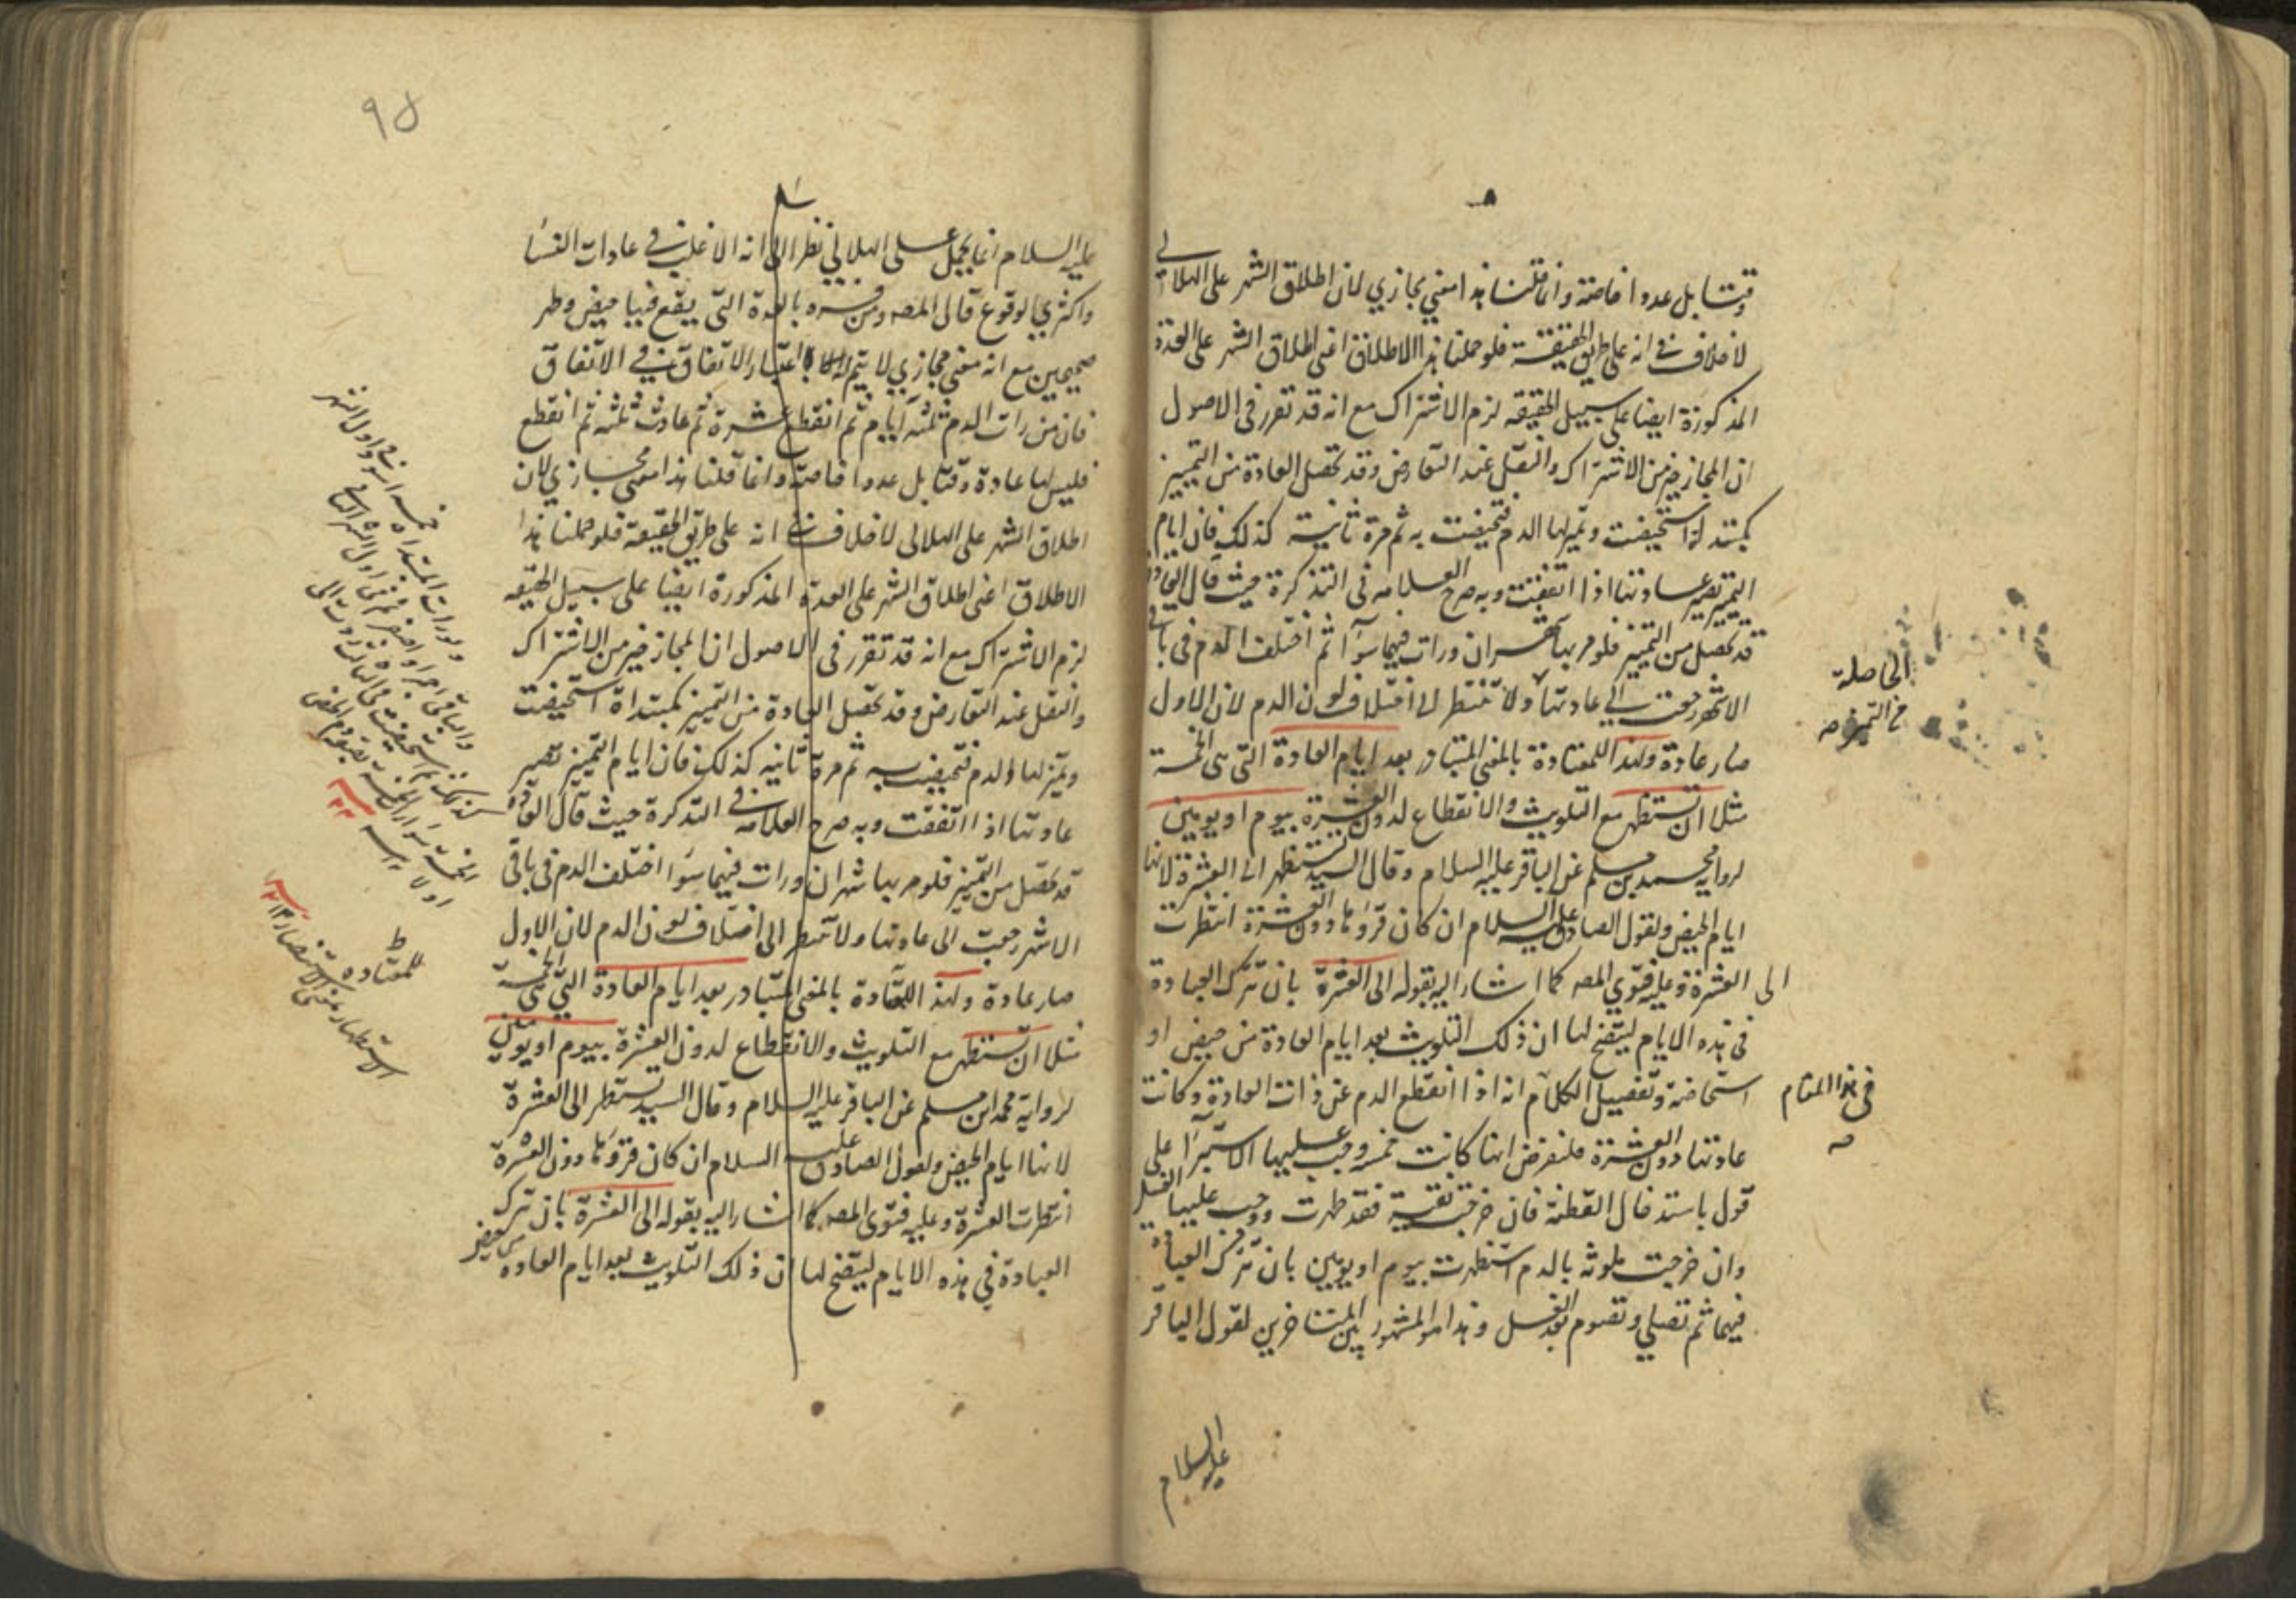 وقتا بل عددا خاصة وانما قلنا هذا معني مجازي لان اطلاق الشهر على الهلالي
لا خلاف في انه على طريق الحقيقة فلو حملنا هذا الاطلاق اعنى اطلاق الشهر على العدة
المذكورة ايضا على سبيل الحقيقه لزم الاشتراك مع انه قد تقرر فى الاصول
ان المجاز خير من الاشتراك والنقل عند التعارض وقد تحصل العادة من التمييز
كمبتدأة استحيضت وتميز لها الدم فتحيضت به ثم مرة ثانية كذلك فان ايام
التمييز تصير عادتها اذا اتفقت وبه صرح العلامه فى التذكرة حيث قال العادة
قد تحصل من التمييز فلو مر بها شهران ورات فيهما سوآء ثم اختلف الدم فى باقي
الاشهر رجعت الي عادتها ولا تنتظر لى اختلاف لون الدم لان الاول
صار عادة ولهذا للمعتادة بالمعني المتبادر بعد ايام العادة التى هى الخمسة
مثلا ان تستظهر مع التلويث والانقطاع لدون العشرة بيوم او يومين
لرواية محمد بن مسلم عن الباقر عليه السلام وقال السيد تستظهر الى العشرة لانها
ايام الحيض ولقول الصادق عليه السلام ان كان قروها دون العشرة انتظرت
الى العشرة وعليه فتوي المصه كما اشار اليه بقوله الى العشرة بان تترك العبادة
فى هذه الايام ليتضح لها ان ذلك التلويث بعد ايام العادة من حيض او
استحاضة وتفصيل الكلام انه اذا انقطع الدم عن ذات العادة وكانت
عادتها دون العشرة فلنفرض انها كانت خمسه وجب عليها الاستبراء على
قول باستدخال القطنة فان خرجت نقية فقد طهرت ووجب عليها الغسل
وان خرجت ملوثه بالدم استظهرت بيوم او يومين بان تترك العبادة
فيهما ثم تصلي وتصوم بعد الغسل وهذا هو المشهور بين المتاخرين لقول الباقر
عليه السلام
الحاصلة
من التميز صه
فى هذا المقام
صه
٩٥
عليه السلام انما يحمل على الهلالي نظرا الى انه الاغلب في عادات النسآء
واكثري الوقوع قال المصه ومن فسره بالعدة التى يقع فيها حيض وطهر
صحيحين مع انه معني مجازي لا يتم له الا باعتبار الاتفاق في الاتفاق
فان من رات الدم ثلثة ايام ثم انقطع عشرة ثم عادت ثلثه ثم انقطع
فليس لها عادة وقتا بل عددا خاصة وانما قلنا هذا معني مجازي لان
اطلاق الشهر على الهلالى لا خلاف في انه على طريق الحقيقة فلو حملنا هذا
الاطلاق اعنى اطلاق الشهر على العدة المذكورة ايضا على سبيل الحقيقه
لزم الاشتراك مع انه قد تقرر فى الاصول ان المجاز خير من الاشتراك
والنقل عند التعارض وقد تحصل العادة من التمييز كمبتداة استحيضت
وتميز لها الدم فتحيضت به ثم مرة ثانيه كذلك فان ايام التمييز تصير
عادتها اذا اتفقت وبه صرح العلامه في التذكرة حيث قال العادة
قد تحصل من التمييز فلو مر بها شهران ورات فيهما سوآء اختلف الدم فى باقى
الاشهر رجعت الى عادتها ولا تنتظر الى اختلاف لون الدم لان الاول
صار عادة ولهذا للمعتادة بالمعنى المتبادر بعد ايام العادة التي هى الخمسة
مثلا ان تستظهر مع التلويث والانقطاع لدون العشرة بيوم او يومين
لرواية محمد ابن مسلم عن الباقر عليه السلام وقال السيد تستظهر الى العشرة
لانها ايام الحيض ولقول الصادق عليه السلام ان كان قروها دون العشرة
انتظرت العشرة وعليه فتوى المصه كما اشار اليه بقوله الى العشرة بان تترك
العبادة في هذه الايام ليتضح لها ان ذلك التلويث بعد ايام العاده من حيض
ولو رات المبتداه خمسه اسود في اول الشهر
والباقى احمر او اصفر
للمعتاده